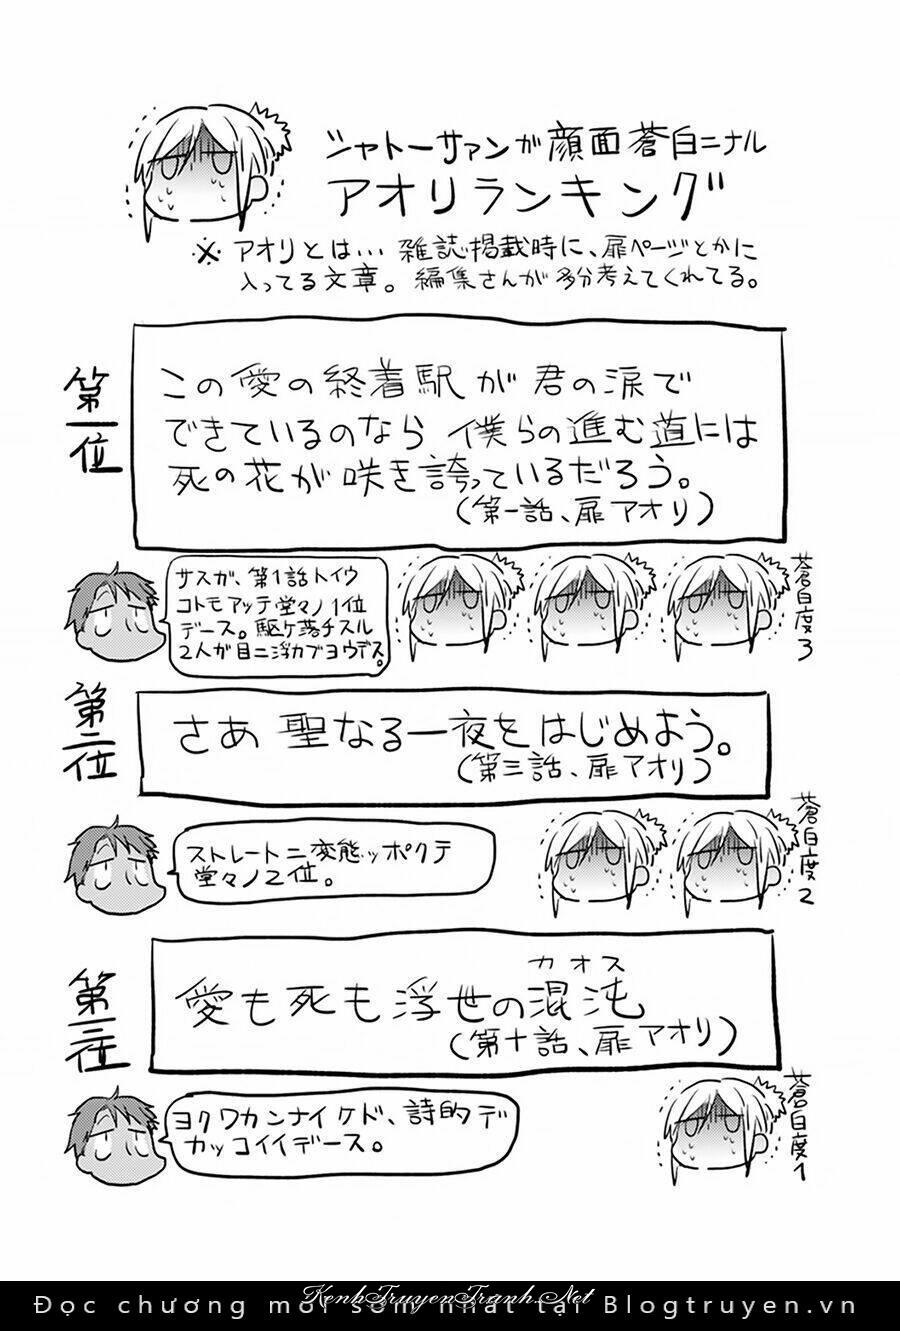 シャトーサァンが顔面蒼白ニナル
アオリランキング
※アオリとは…雑誌掲載時に、扉ページとかに
入ってる文章。編集さんが多分考えてくれてる。
第一位
この愛の終着駅が君の涙で
できているのなら僕らの進む道には
死の花が咲き誇っているだろう。
(第一話、扉アオリ)
サスガ、第1話トイウ
コトモアッテ堂々ノ1位
デース。駆ケ落チスル
2人が目ニ浮カブヨウデス。
蒼白度3
第二位
さあ聖なる一夜をはじめよう。
(第三話、扉アオリ)
ストレートニ変態ッポクテ
堂々ノ2位。
蒼白度2
第三位
カオス
愛も死も浮世の混沌
(第十話、扉アオリ)
ヨクワカンナイケド、詩的デ
カッコイイデース。
蒼白度1
KenhTruyenTranh.Net
Đọc chương mới sớm nhất tại Blogtruyen.vn